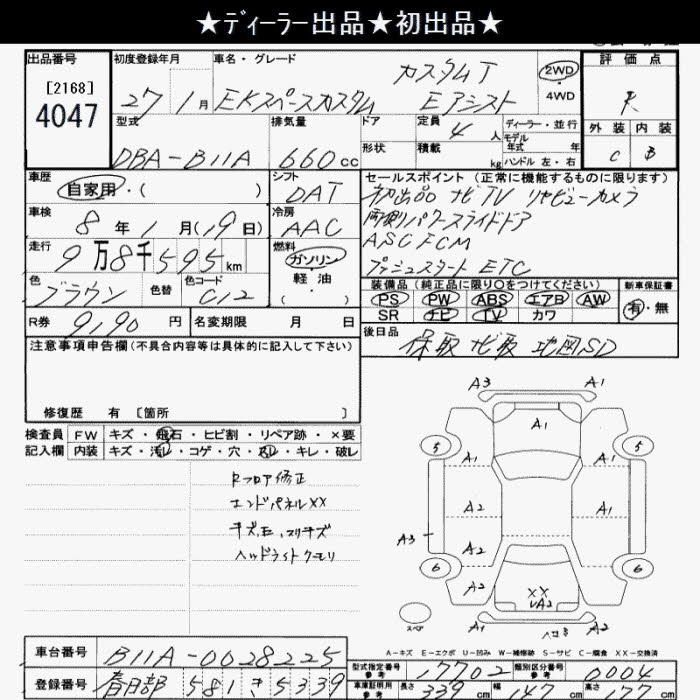 ★ディーラー出品★初出品★
出品番号
[2168]
4047
初度登録年月
27 1月
車名・グレード
カスタムT
EKスペースカスタム Eアシスト
2WD
・
4WD
評価点
R
外装 内装
C B
型式
DBA-B11A
排気量
660cc
ドア
形状
定員
4人
積載
kg
ディーラー・並行
モデル
年式 年
ハンドル 左・右
車歴
自家用・( )
シフト
DAT
車検
8年1月(19日)
冷房
AAC
走行
9万8千595km
燃料
ガソリン
・
軽油
( )
色
ブラウン
色替
色コード
C12
R券
9190円
名変期限 月 日
セールスポイント(正常に機能するものに限ります)
初出品 ナビTV リヤビューカメラ
両側パワースライドドア
ASC FCM
プッシュスタート ETC
装備品(純正品に限り○をつけてください)
PS PW ABS エアB AW
SR ナビ TV カワ
新車保証書
有・無
後日品
保取 ナビ取 地図SD
注意事項申告欄(不具合内容等は具体的に記入して下さい)
修復歴 有 [箇所 ]
検査員
記入欄
FW キズ・飛石・ヒビ割・リペア跡・×要
内装 キズ・汚レ・コゲ・穴・スレ・キレ・破レ
Rフロア修正
エンドパネルXX
キズ,E,スリキズ
ヘッドライトクモリ
A3 A1
A1
5 5
A1 A1
A2 A1
A3
A2
6 6
A2 XX A2
A2
スペア
A1 A2
A-キズ E-エクボ U-凹み W-補修跡 S-サビ C-腐食 XX-交換済
車台番号 B11A-0028225
登録番号 春日部 581 き 5339
型式指定番号
参考
17702
類別区分番号
参考
0004
車庫証明用
参考
長さ 339cm 幅 147cm 高さ
cm